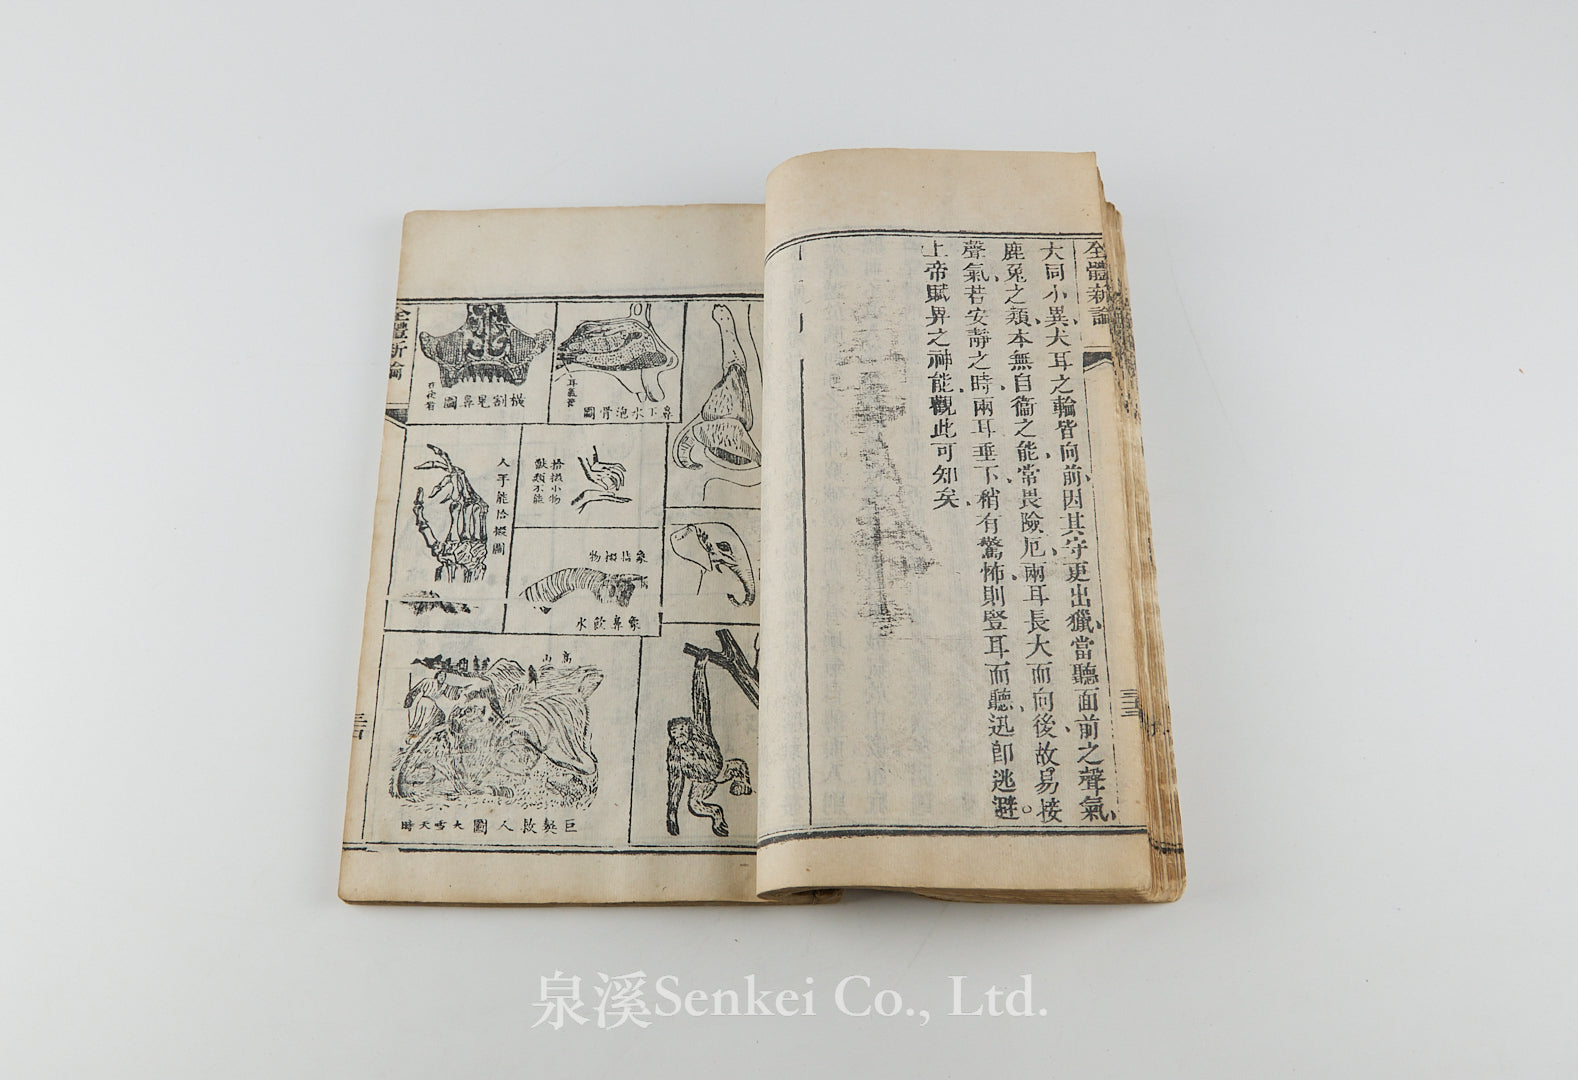 全體新論
大同小異犬耳之輪皆向前因其守更出獵當聽面前之聲氣
鹿兎之類本無自衞之能常畏險厄兩耳長大而向後故易接
聲氣若安靜之時兩耳垂下稍有驚怖則豎耳而聽迅卽逃避
上帝賦畀之神能觀此可知矣
三三
鼻下水泡骨圖
橫割見鼻圖
拾掇小物
獸類不能
人手能拾掇圖
象拈掇物
象鼻飲水
高山
巨獒救人圖大雪天時
全體新論
泉溪Senkei Co., Ltd.